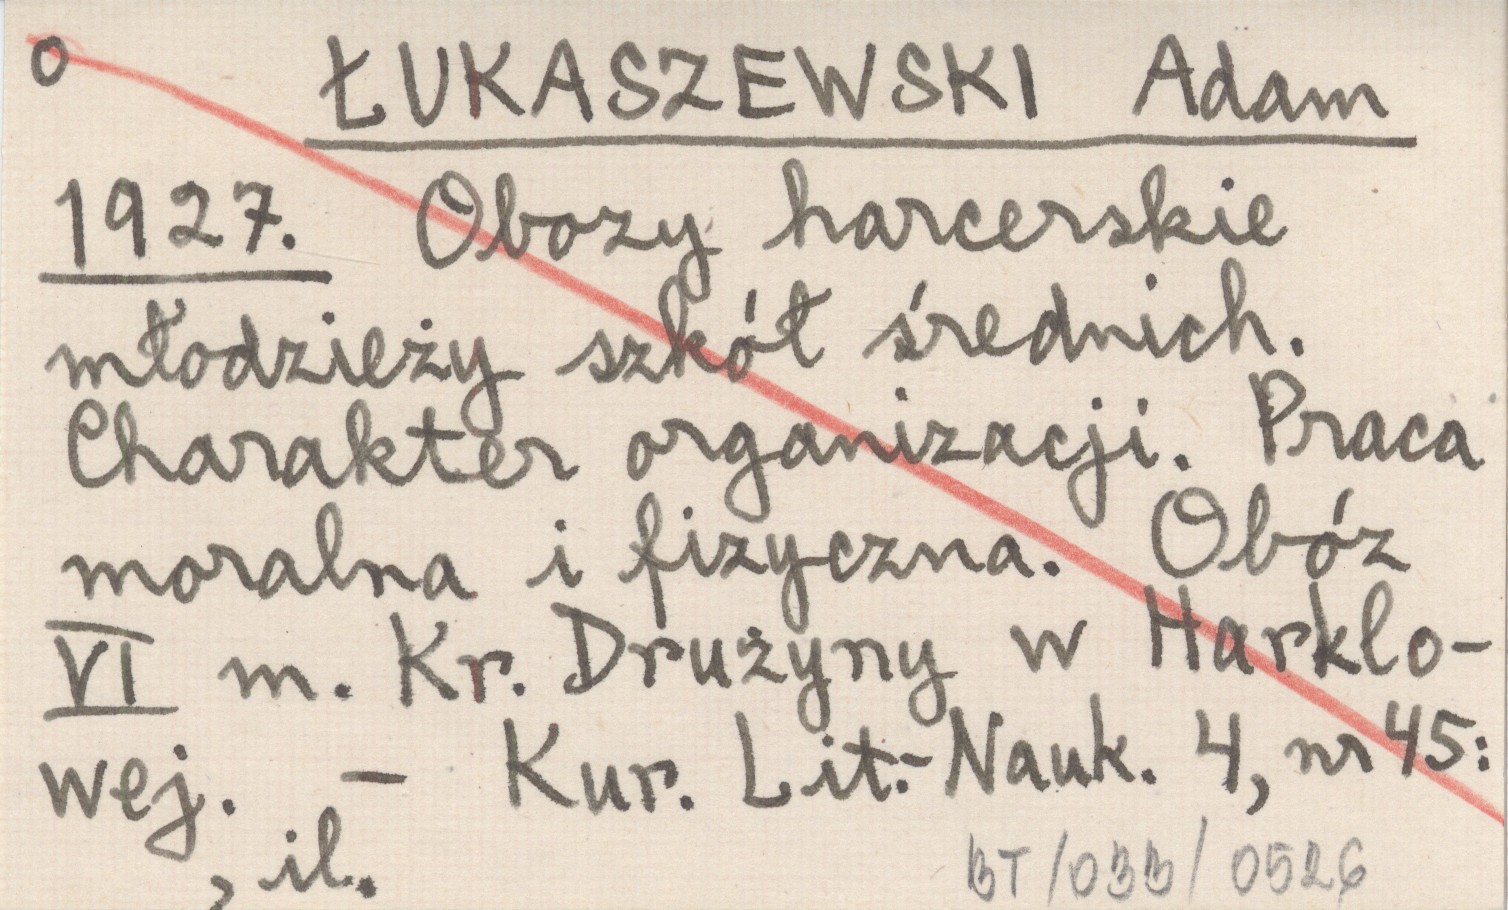 o ŁUKASZEWSKI Adam
1927. Obozy harcerskie
młodzieży szkół średnich.
Charakter organizacji. Praca
moralna i fizyczna. Obóz
VI m. Kr. Drużyny w Harklo-
wej. – Kur. Lit.-Nauk. 4, nr 45:
, il.
BT/033/0526